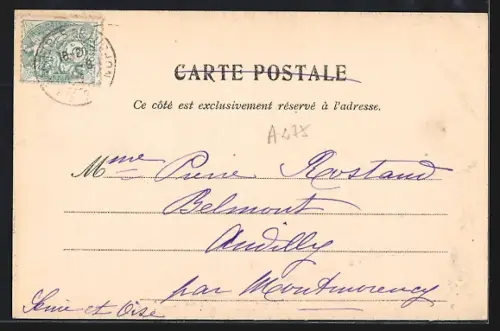 CARTE POSTALE
Ce côté est exclusivement réservé à l'adresse.
A475
Mme Pierre Rostand
Belmont
Andilly
par Montmorency
Seine et Oise